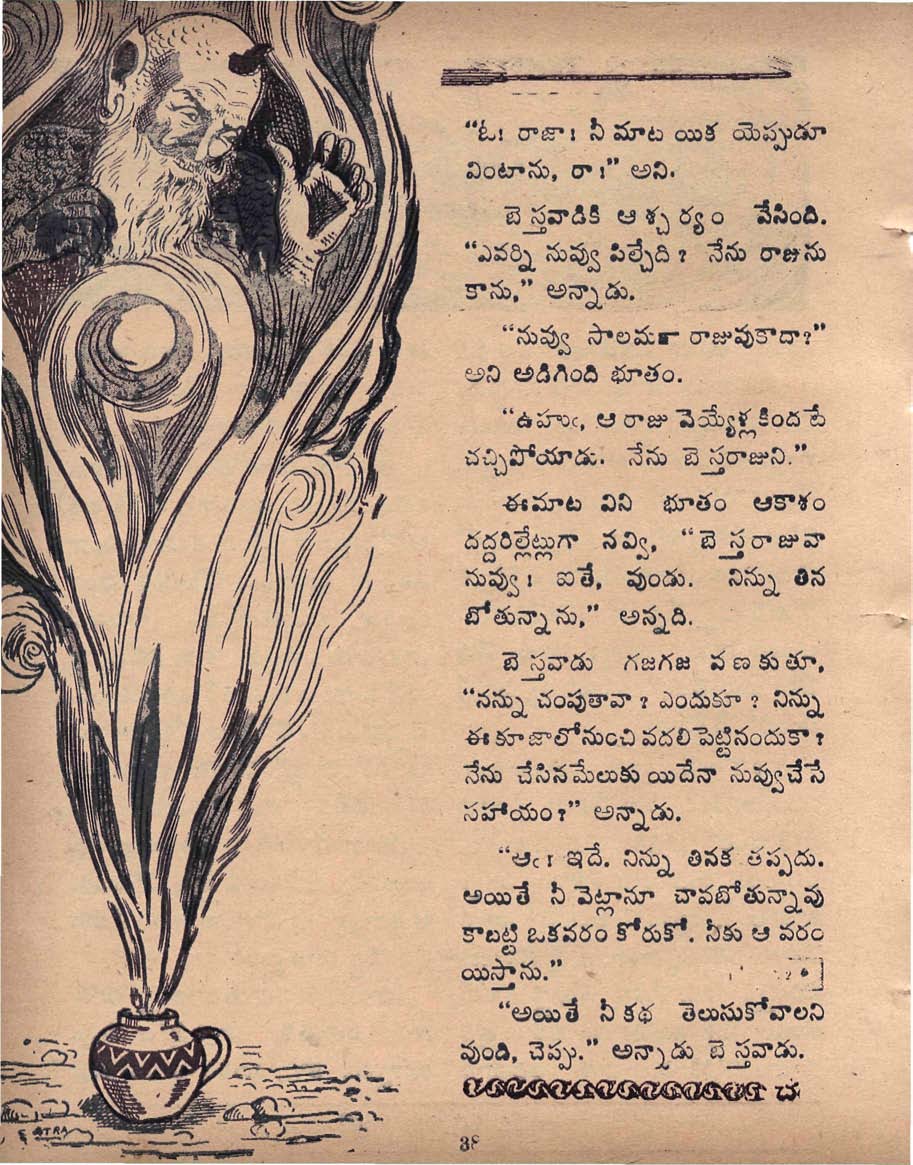 “ఓ! రాజా! నీ మాట యిక యెప్పుడూ
వింటాను, రా!” అని.
బెస్తవాడికి ఆశ్చర్యం వేసింది.
“ఎవర్ని నువ్వు పిల్చేది? నేను రాజును
కాను,” అన్నాడు.
“నువ్వు సాలమన్ రాజువుకాదా?”
అని అడిగింది భూతం.
“ఉహుఁ, ఆ రాజు వెయ్యేళ్లకిందటే
చచ్చిపోయాడు. నేను బెస్తరాజుని.”
ఈమాట విని భూతం ఆకాశం
దద్దరిల్లేట్లుగా నవ్వి, “బెస్తరాజువా
నువ్వు! ఐతే, వుండు. నిన్ను తిన
బోతున్నాను,” అన్నది.
బెస్తవాడు గజగజ వణకుతూ,
“నన్ను చంపుతావా? ఎందుకూ? నిన్ను
ఈ కూజాలోనుంచి వదలిపెట్టినందుకా?
నేను చేసినమేలుకు యిదేనా నువ్వుచేసే
సహాయం?” అన్నాడు.
“ఆఁ! ఇదే. నిన్ను తినక తప్పదు.
అయితే నీ వెట్లానూ చావబోతున్నావు
కాబట్టి ఒకవరం కోరుకో. నీకు ఆ వరం
యిస్తాను.”
“అయితే నీ కథ తెలుసుకోవాలని
వుంది, చెప్పు.” అన్నాడు బెస్తవాడు.
చ
38